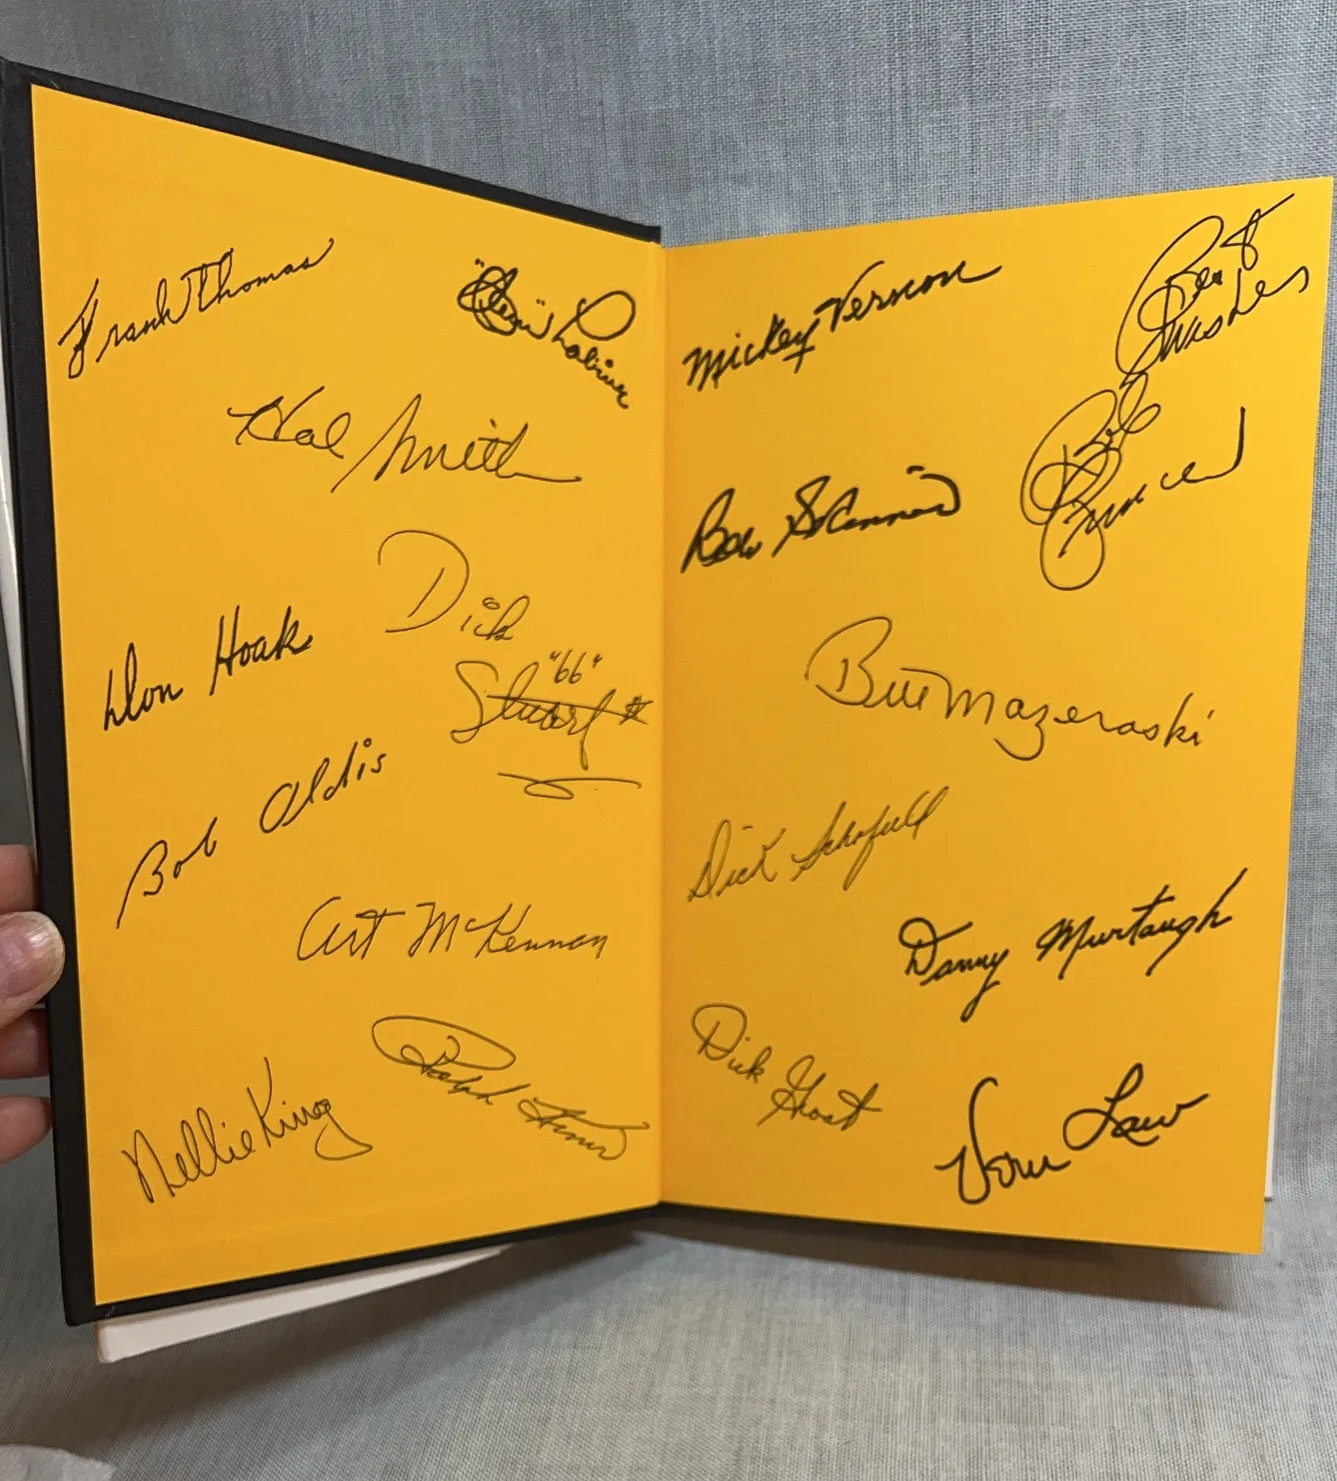 Frank Thomas
"Clem" Labine
Hal Smith
Don Hoak
Dick
Stuart "66"
Bob Oldis
Art McKennan
Nellie King
Ralph
Mickey Vernon
Best
Wishes
Bob
Bob Skinner
Bill Mazeroski
Dick Schofield
Danny Murtaugh
Dick Groat
Vern Law